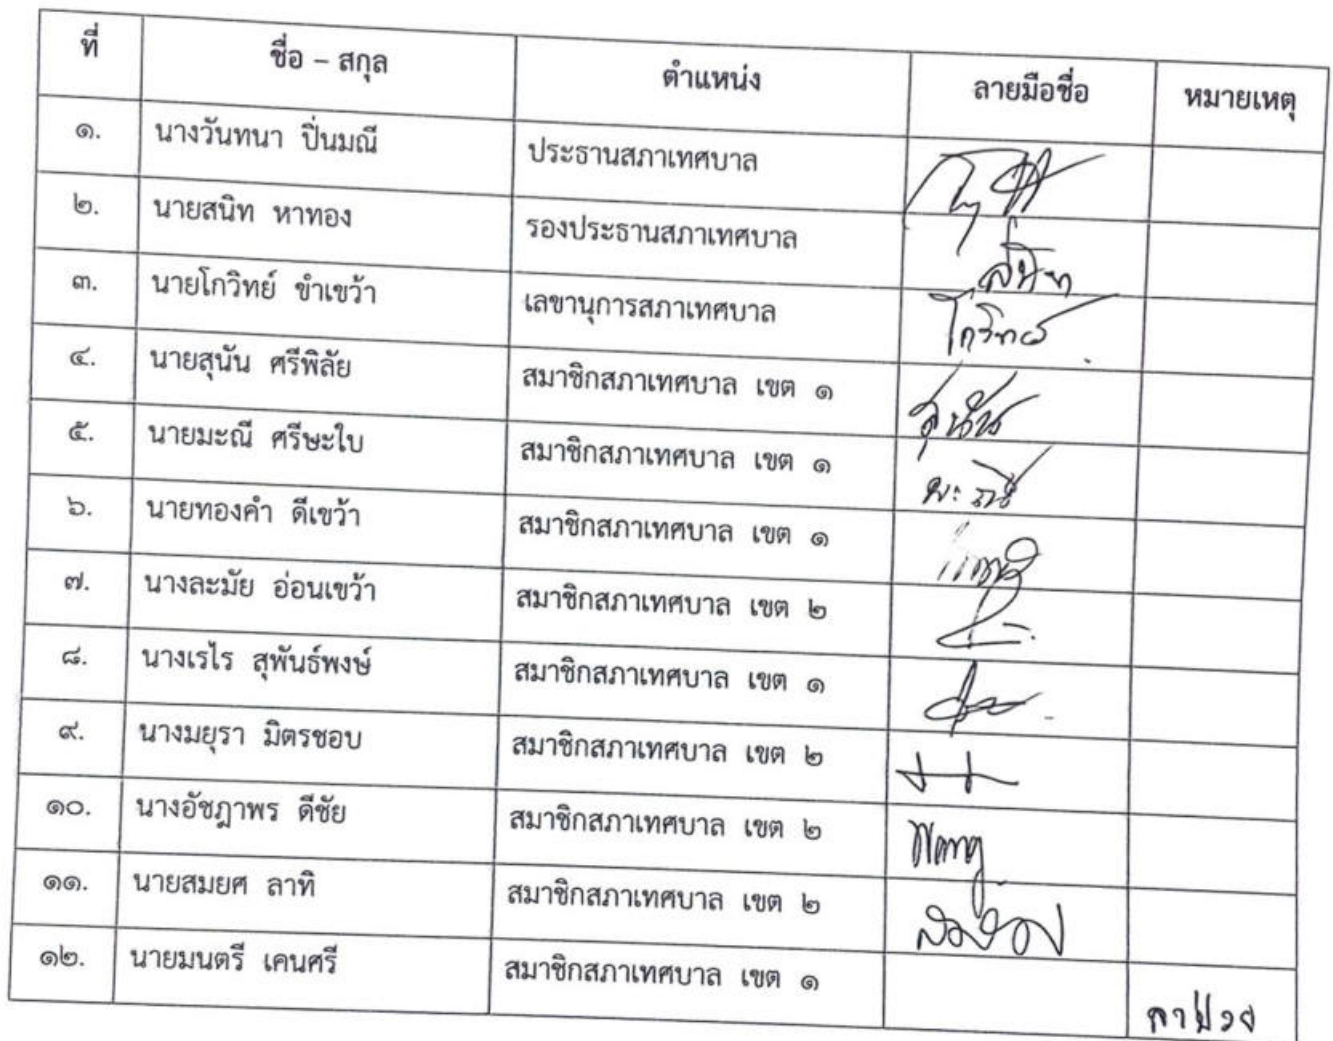 ที่ ชื่อ – สกุล ตำแหน่ง ลายมือชื่อ หมายเหตุ
๑. นางวันทนา ปิ่นมณี ประธานสภาเทศบาล
๒. นายสนิท หาทอง รองประธานสภาเทศบาล สนิท
๓. นายโกวิทย์ ขำเขว้า เลขานุการสภาเทศบาล โกวิทย์
๔. นายสุนัน ศรีพิลัย สมาชิกสภาเทศบาล เขต ๑ สุนัน
๕. นายมะณี ศรีษะใบ สมาชิกสภาเทศบาล เขต ๑ มะณี
๖. นายทองคำ ดีเขว้า สมาชิกสภาเทศบาล เขต ๑
๗. นางละมัย อ่อนเขว้า สมาชิกสภาเทศบาล เขต ๒
๘. นางเรไร สุพันธ์พงษ์ สมาชิกสภาเทศบาล เขต ๑
๙. นางมยุรา มิตรชอบ สมาชิกสภาเทศบาล เขต ๒
๑๐. นางอัชฎาพร ดีชัย สมาชิกสภาเทศบาล เขต ๒
๑๑. นายสมยศ ลาทิ สมาชิกสภาเทศบาล เขต ๒
๑๒. นายมนตรี เคนศรี สมาชิกสภาเทศบาล เขต ๑ ลาป่วย